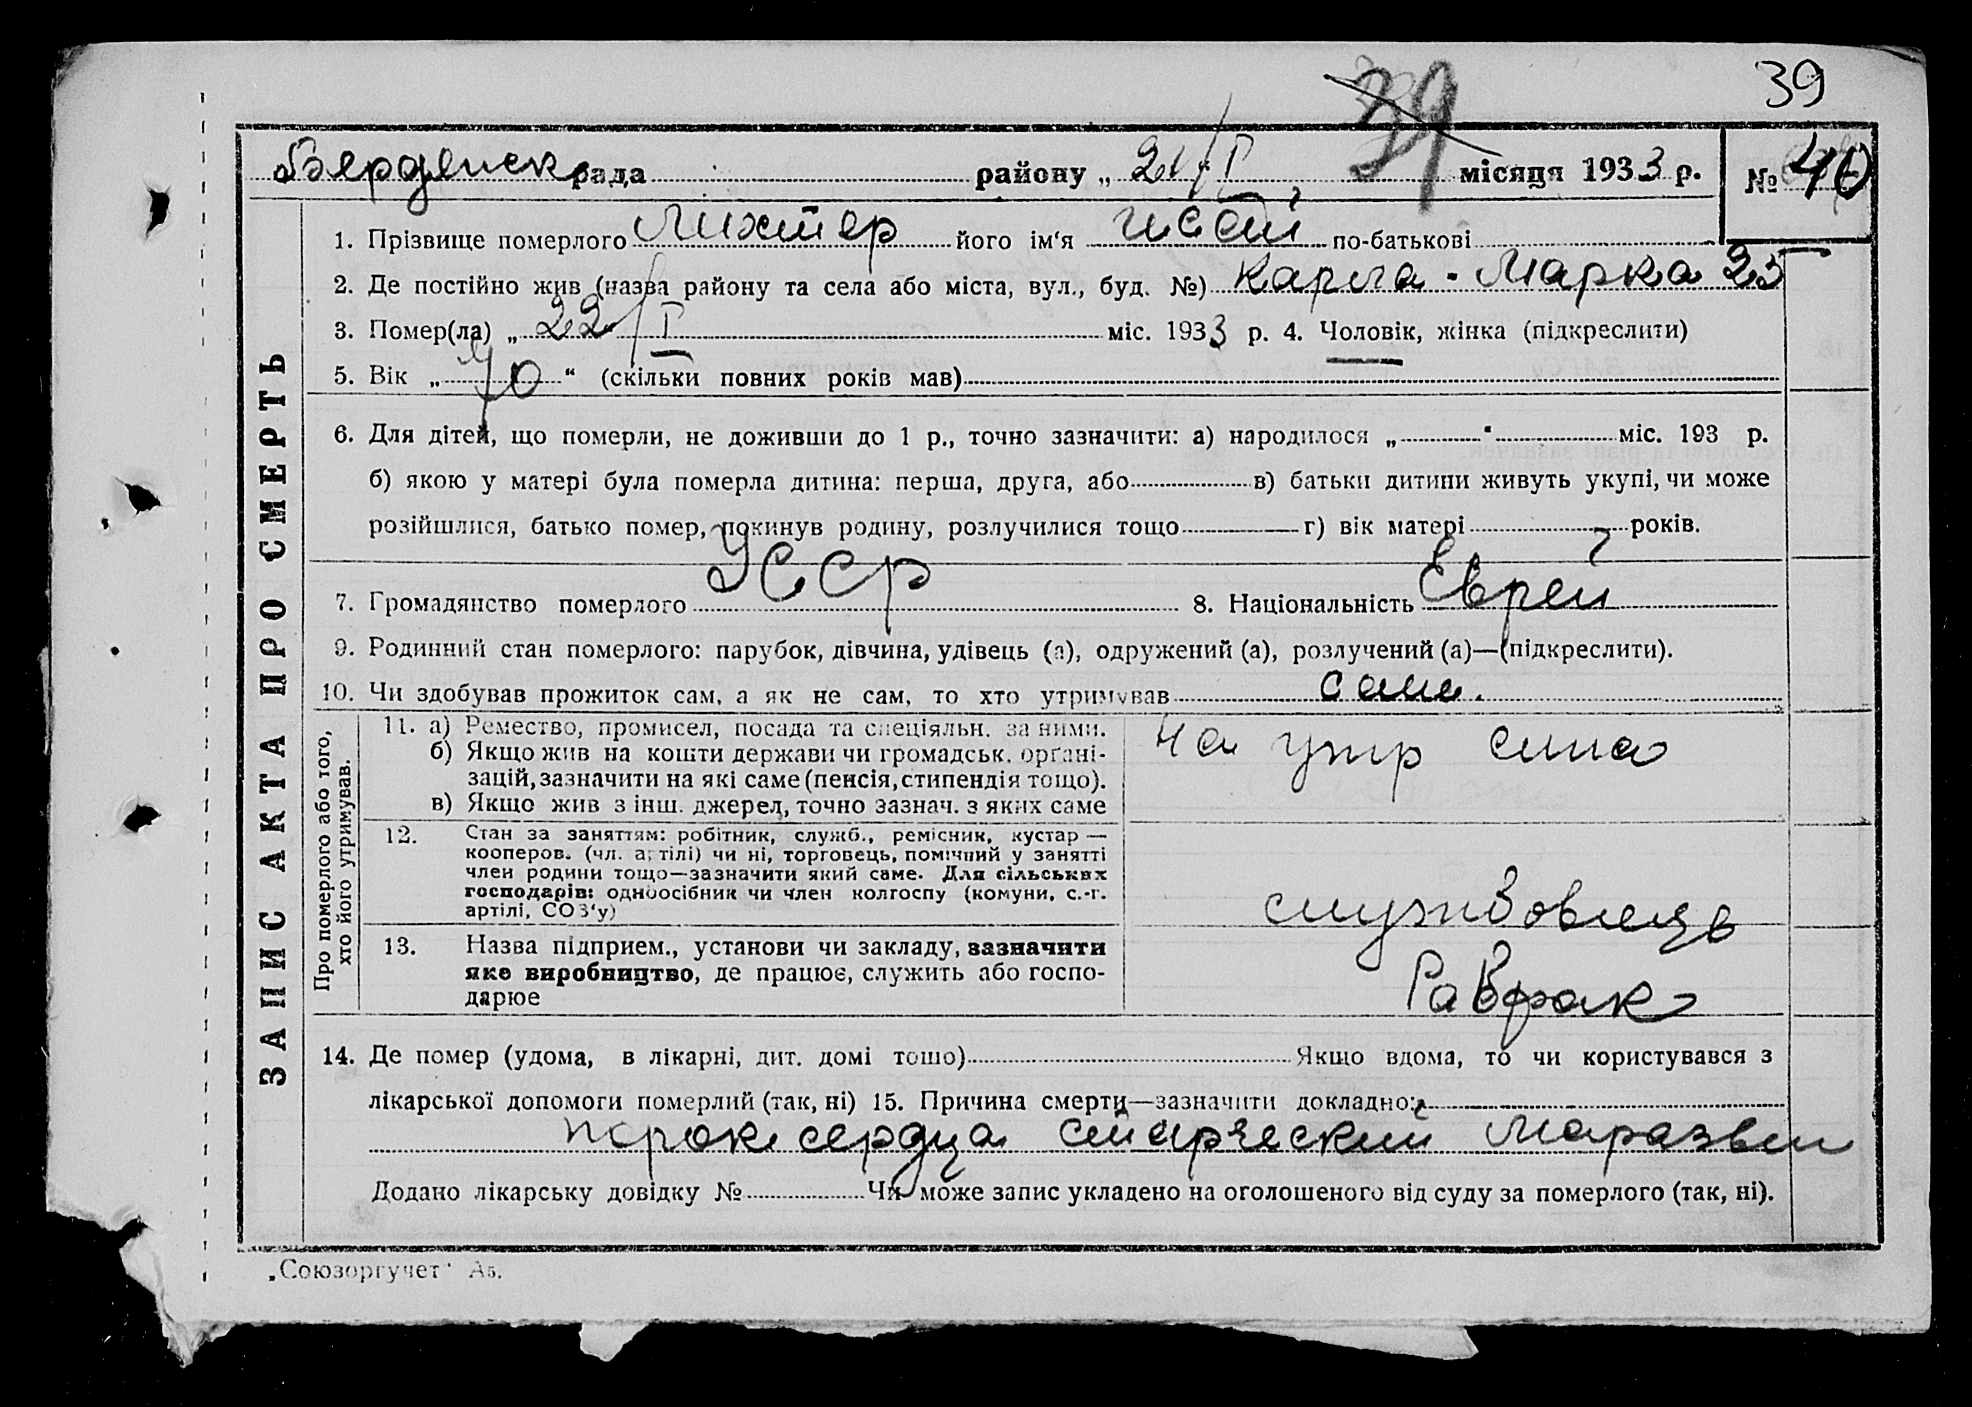 39
39
Бердянськ рада району „ 21/I місяця 1933 р. № 40
1. Прізвище померлого Лихтер його ім'я Исай по-батькові
2. Де постійно жив (назва району та села або міста, вул., буд. №) Карла-Марка 25
3. Помер(ла) „ 22/I міс. 1933 р. 4. Чоловік, жінка (підкреслити)
5. Вік „ 70 “ (скільки повних років мав)
6. Для дітей, що померли, не доживши до 1 р., точно зазначити: а) народилося „ “ міс. 193 р.
б) якою у матері була померла дитина: перша, друга, або в) батьки дитини живуть укупі, чи може
розійшлися, батько помер, покинув родину, розлучилися тощо г) вік матері років.
7. Громадянство померлого УССР 8. Національність Еврей
9. Родинний стан померлого: парубок, дівчина, удівець (а), одружений (а), розлучений (а)—(підкреслити).
10. Чи здобував прожиток сам, а як не сам, то хто утримував
ЗАПИС АКТА ПРО СМЕРТЬ
Про померлого або того,
хто його утримував.
11. а) Ремество, промисел, посада та спеціяльн. за ними.
б) Якщо жив на кошти держави чи громадськ. орґані-
зацій, зазначити на які саме (пенсія, стипендія тощо).
в) Якщо жив з інш. джерел, точно зазнач. з яких саме
на утр сина
12. Стан за заняттям: робітник, служб., ремісник, кустар —
кооперов. (чл. артілі) чи ні, торговець, помічний у занятті
член родини тощо—зазначити який саме. Для сільських
господарів: одноосібник чи член колгоспу (комуни, с.-г.
артілі, СОЗ'у)
службовець
13. Назва підприем., установи чи закладу, зазначити
яке виробництво, де працює, служить або госпо-
дарює
14. Де помер (удома, в лікарні, дит. домі тощо) Якщо вдома, то чи користувався з
лікарської допомоги померлий (так, ні) 15. Причина смерти—зазначити докладно:
порок сердца старческий
Додано лікарську довідку № Чи може запис укладено на оголошеного від суду за померлого (так, ні).
„Союзоргучет“ А5.